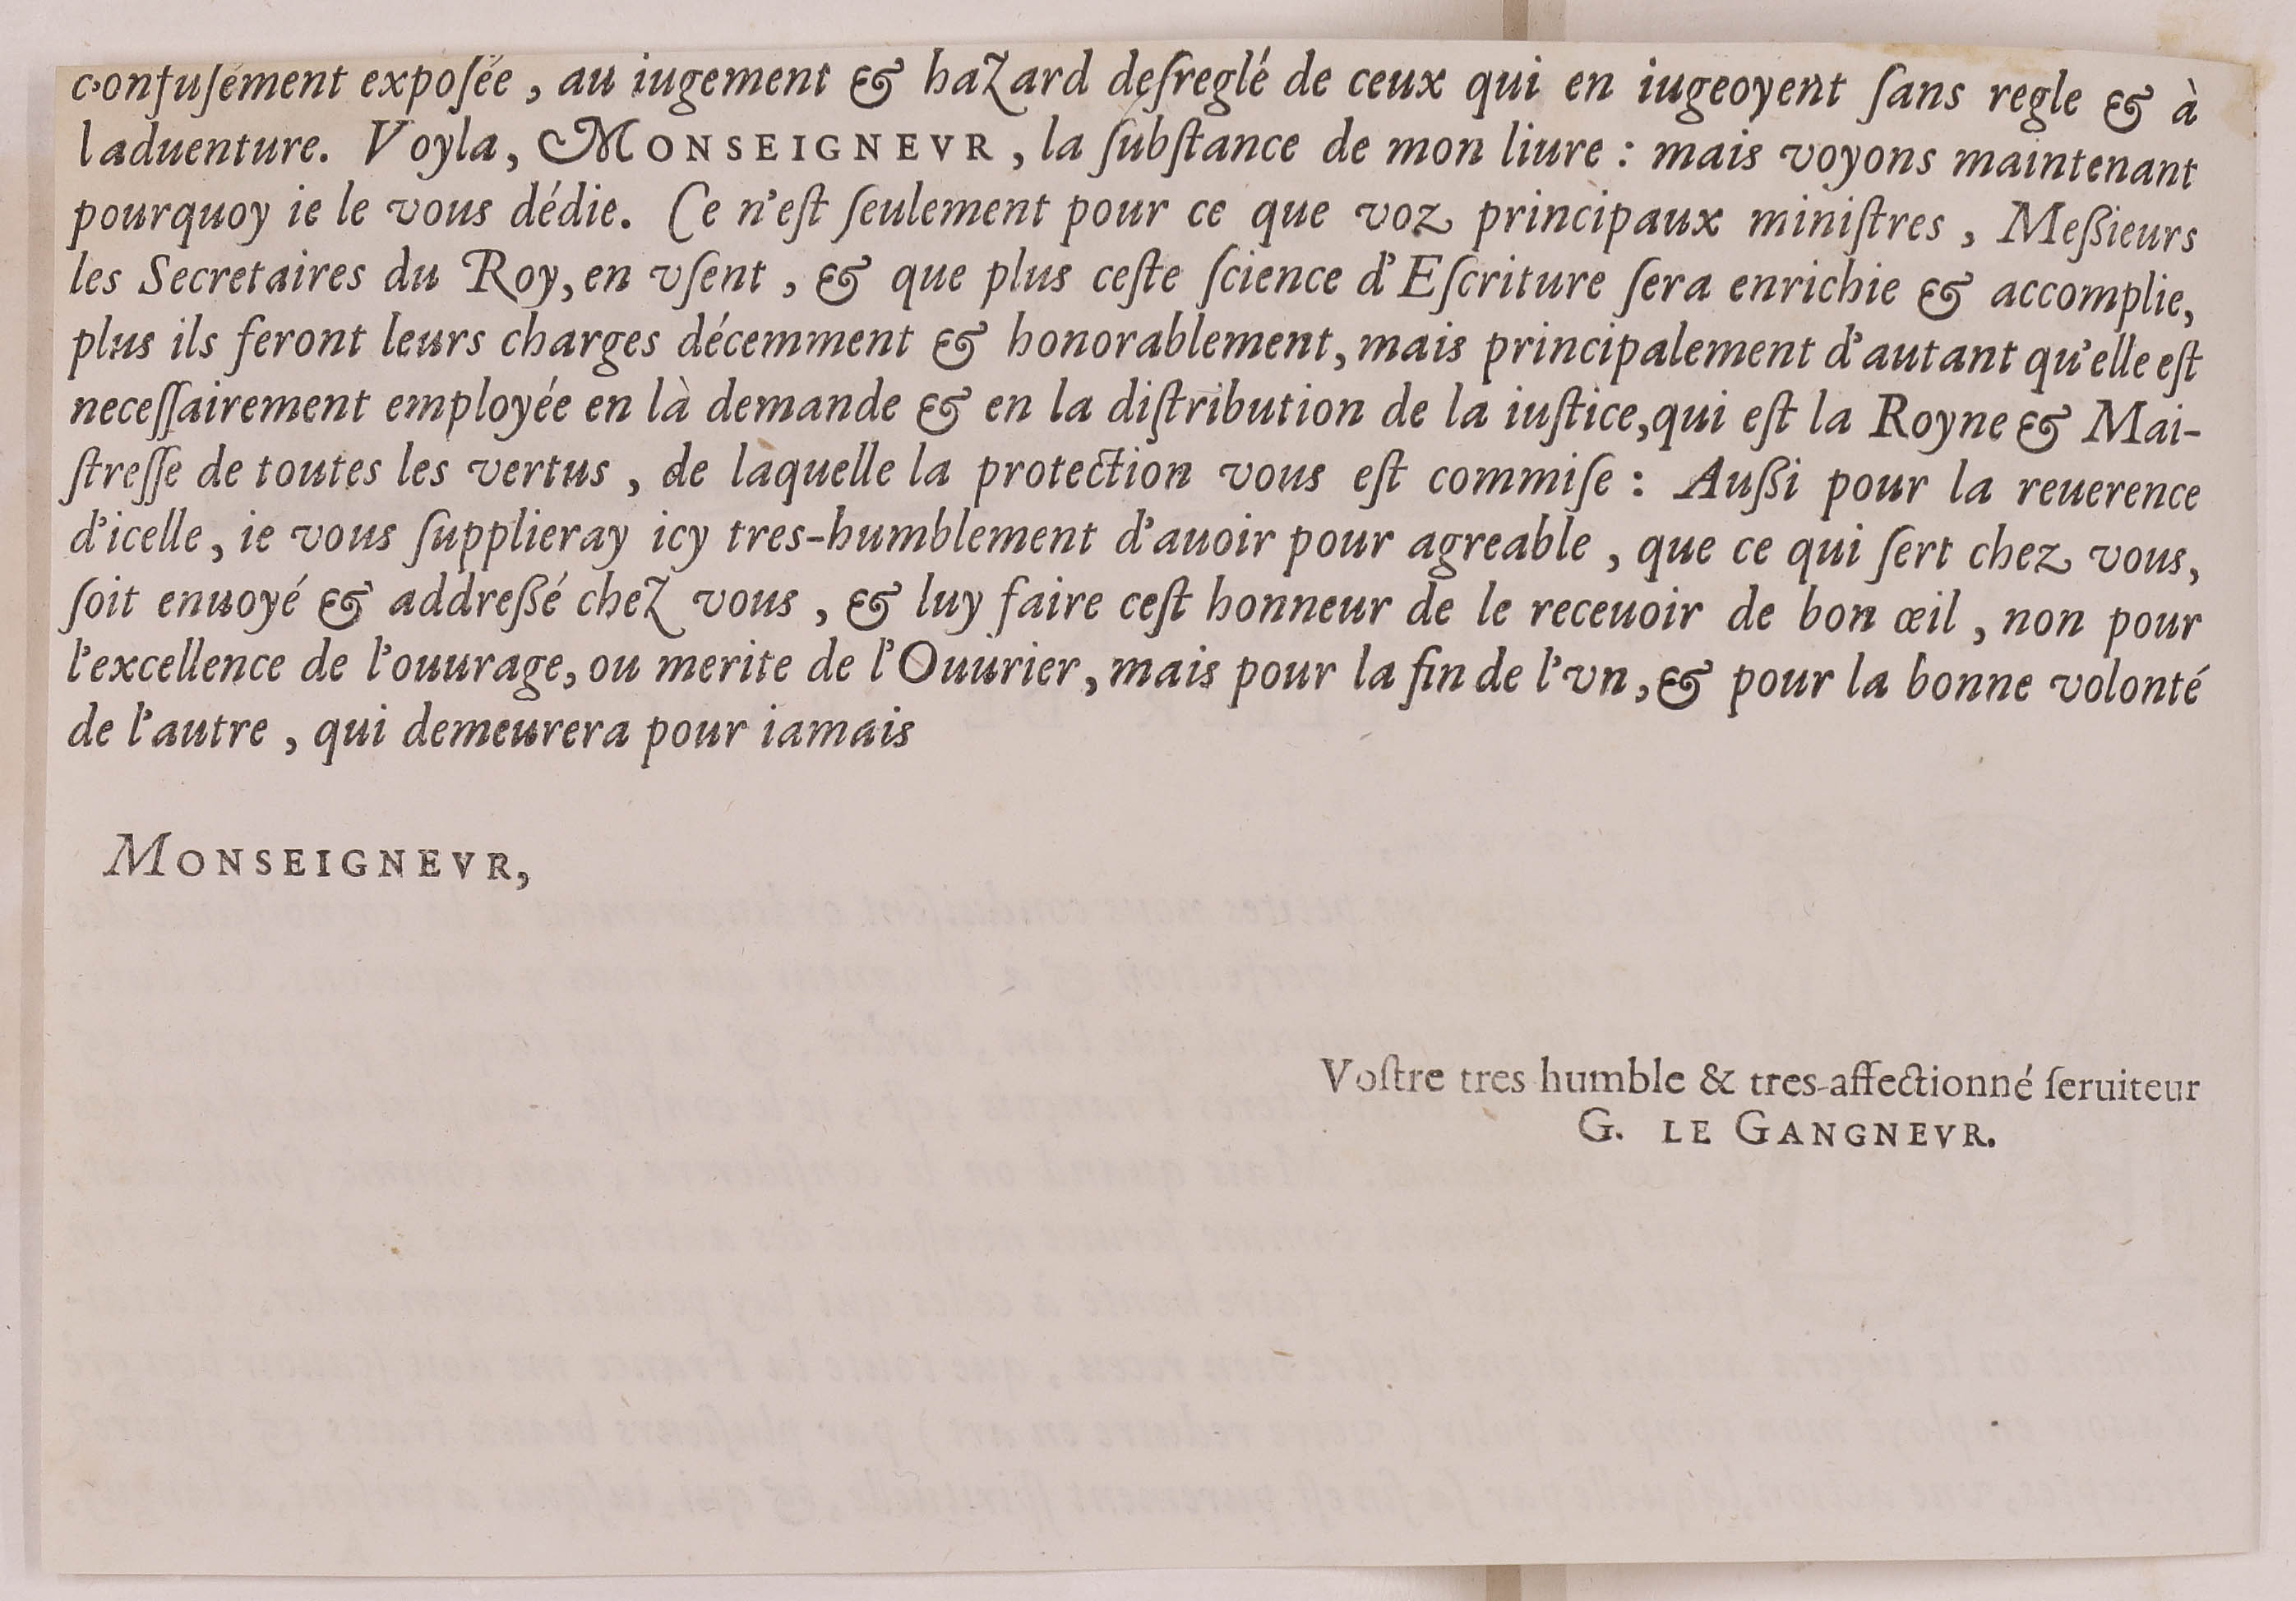 confusément exposée, au iugement & haZard desreglé de ceux qui en iugeoyent sans regle & à
laduenture. Voyla, MONSEIGNEVR, la substance de mon liure : mais voyons maintenant
pourquoy ie le vous dédie. Ce n'est seulement pour ce que voz principaux ministres, Meßieurs
les Secretaires du Roy, en vsent, & que plus ceste science d'Escriture sera enrichie & accomplie,
plus ils feront leurs charges décemment & honorablement, mais principalement d'autant qu'elle est
necessairement employée en là demande & en la distribution de la iustice, qui est la Royne & Mai-
stresse de toutes les vertus, de laquelle la protection vous est commise : Außi pour la reuerence
d'icelle, ie vous supplieray icy tres-humblement d'auoir pour agreable, que ce qui sert chez vous,
soit enuoyé & addreßé cheZ vous, & luy faire cest honneur de le receuoir de bon œil, non pour
l'excellence de l'ouurage, ou merite de l'Ouurier, mais pour la fin de l'vn, & pour la bonne volonté
de l'autre, qui demeurera pour iamais
MONSEIGNEVR,
Vostre tres humble & tres-affectionné seruiteur
G. LE GANGNEVR.